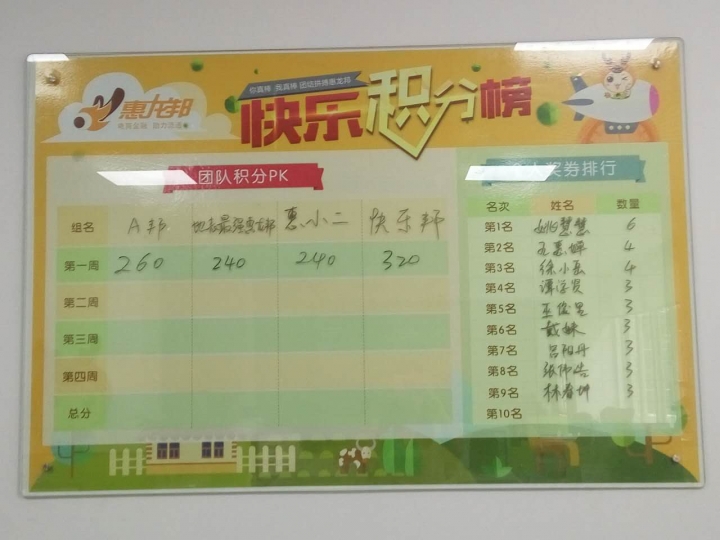 惠龙邦
你真棒 我真棒 团结拼搏惠龙邦
快乐积分榜
团队积分PK
组名 A邦 地表最强惠龙邦 惠小二 快乐邦
第一周 260 240 240 320
第二周
第三周
第四周
总分
奖券排行
名次 姓名 数量
第1名 姚慧慧 6
第2名 4
第3名 徐小磊 4
第4名 3
第5名 3
第6名 戴林 3
第7名 吕阳丹 3
第8名 张伟浩 3
第9名 林春坤 3
第10名